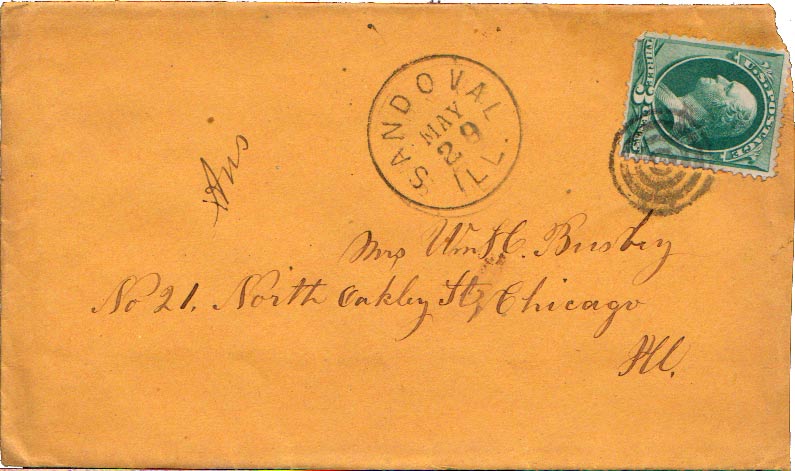 SANDOVAL
MAY
29
ILL.
U.S. POSTAGE
THREE
3
CENTS
Ans
Mrs Wm H. Busby
No 21. North Oakley St, Chicago
Ill.